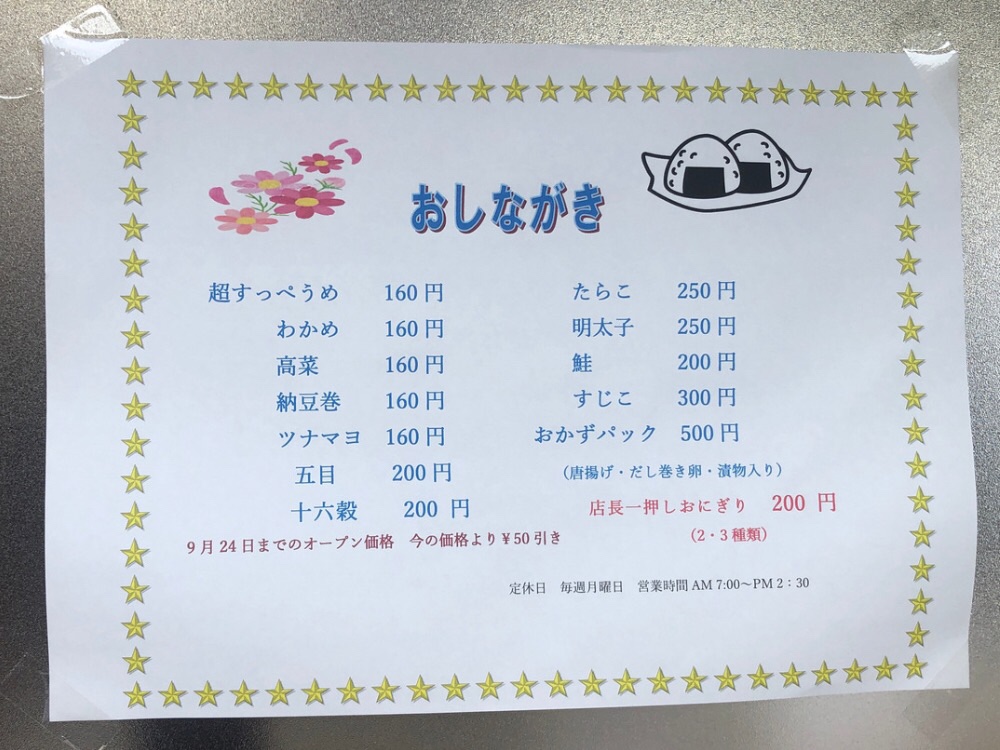 おしながき
超すっぺうめ 160円
わかめ 160円
高菜 160円
納豆巻 160円
ツナマヨ 160円
五目 200円
十六穀 200 円
たらこ 250円
明太子 250円
鮭 200円
すじこ 300円
おかずパック 500円
（唐揚げ・だし巻き卵・漬物入り）
店長一押しおにぎり 200 円
（2・3種類）
9月24日までのオープン価格 今の価格より¥50引き
定休日 毎週月曜日 営業時間 AM 7:00～PM 2：30